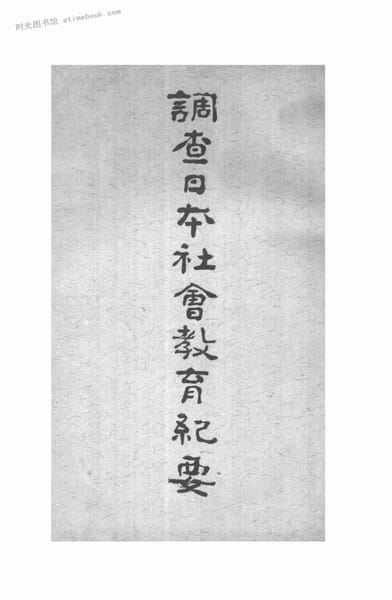 时光图书馆 atimebook.com
調查日本社會教育紀要